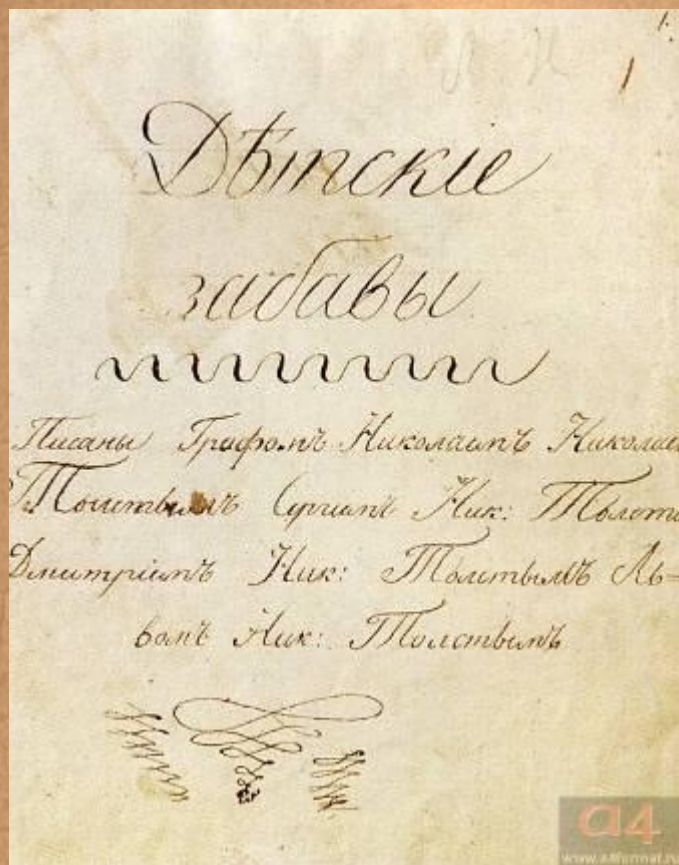 1.
Дѣтскіе
забавы
Писаны Графомъ Николаимъ Николае
Толстымъ Сергиамъ Ник: Толсты
Дмитріимъ Ник: Толстымъ Ль=
вомъ Ник: Толстымъ
a4
www.a4format.ru